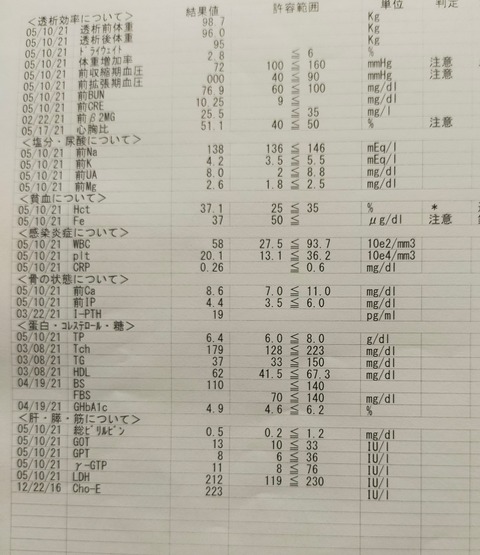 結果値 許容範囲 単位 判定
<透析効率について>
05/10/21 透析前体重 98.7 Kg
05/10/21 透析後体重 96.0 Kg
ﾄﾞﾗｲｳｪｲﾄ 95 Kg
05/10/21 体重増加率 2.8 ≦ 6 %
05/10/21 前収縮期血圧 72 100 ≦ 160 mmHg 注意
05/10/21 前拡張期血圧 000 40 ≦ 90 mmHg 注意
05/10/21 前BUN 76.9 60 ≦ 100 mg/dl
05/10/21 前CRE 10.25 9 ≦ mg/dl
02/22/21 前β2MG 25.5 ≦ 35 mg/l
05/17/21 心胸比 51.1 40 ≦ 50 % 注意
<塩分・尿酸について>
05/10/21 前Na 138 136 ≦ 146 mEq/l
05/10/21 前K 4.2 3.5 ≦ 5.5 mEq/l
05/10/21 前UA 8.0 2 ≦ 8.8 mg/dl
05/10/21 前Mg 2.6 1.8 ≦ 2.5 mg/dl
<貧血について>
05/10/21 Hct 37.1 25 ≦ 35 % *
05/10/21 Fe 37 50 ≦ μg/dl 注意
<感染炎症について>
05/10/21 WBC 58 27.5 ≦ 93.7 10e2/mm3
05/10/21 plt 20.1 13.1 ≦ 36.2 10e4/mm3
05/10/21 CRP 0.26 ≦ 0.6 mg/dl
<骨の状態について>
05/10/21 前Ca 8.6 7.0 ≦ 11.0 mg/dl
05/10/21 前IP 4.4 3.5 ≦ 6.0 mg/dl
03/22/21 I-PTH 19 pg/ml
<蛋白・ｺﾚｽﾃﾛｰﾙ・糖>
05/10/21 TP 6.4 6.0 ≦ 8.0 g/dl
03/08/21 Tch 179 128 ≦ 223 mg/dl
03/08/21 TG 37 33 ≦ 150 mg/dl
03/08/21 HDL 62 41.5 ≦ 67.3 mg/dl
04/19/21 BS 110 ≦ 140 mg/dl
FBS 70 ≦ 140 mg/dl
04/19/21 GHbA1c 4.9 4.6 ≦ 6.2 %
<肝・膵・筋について>
05/10/21 総ﾋﾞﾘﾙﾋﾞﾝ 0.5 0.2 ≦ 1.2 mg/dl
05/10/21 GOT 13 10 ≦ 33 IU/l
05/10/21 GPT 8 6 ≦ 36 IU/l
05/10/21 γ-GTP 11 8 ≦ 76 IU/l
05/10/21 LDH 212 119 ≦ 230 IU/l
12/22/16 Cho-E 223 IU/l